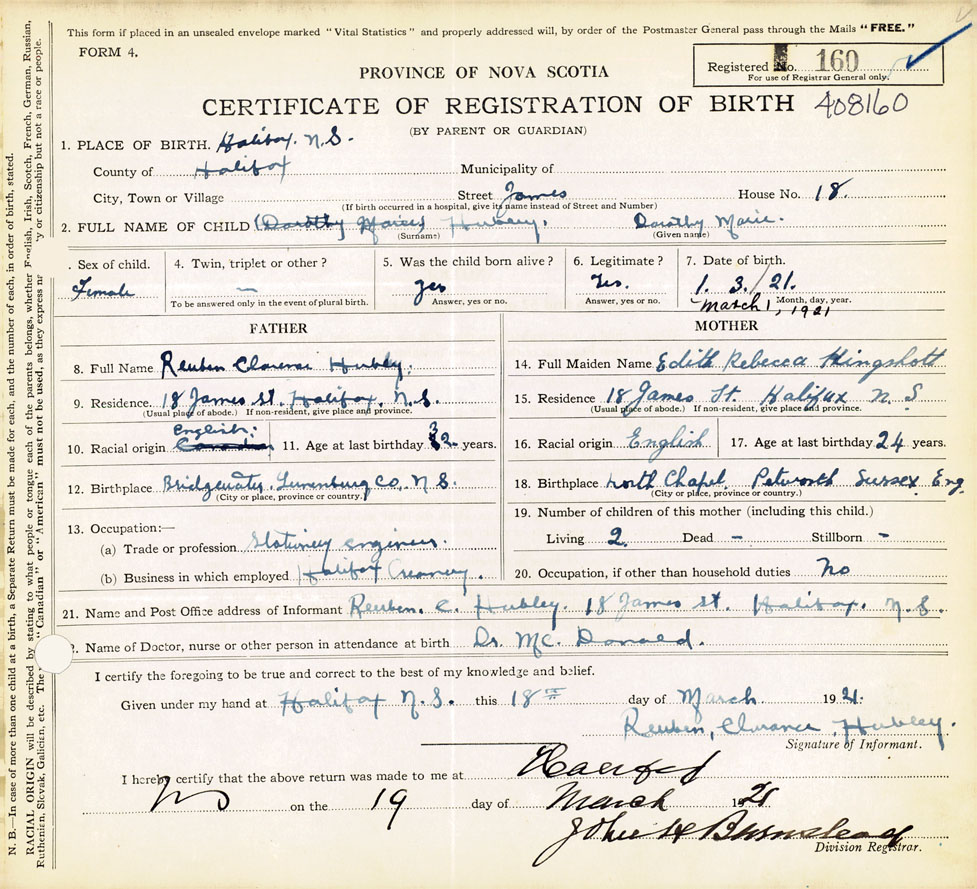 This form if placed in an unsealed envelope marked "Vital Statistics" and properly addressed will, by order of the Postmaster General pass through the Mails "FREE."
FORM 4.
Registered No. 160
For use of Registrar General only.
PROVINCE OF NOVA SCOTIA
CERTIFICATE OF REGISTRATION OF BIRTH 408160
(BY PARENT OR GUARDIAN)
1. PLACE OF BIRTH. Halifax. N.S.
County of Halifax Municipality of
City, Town or Village Street James House No. 18.
(If birth occurred in a hospital, give its name instead of Street and Number)
2. FULL NAME OF CHILD (Dorothy Marie) Hubley. Dorothy Marie.
(Surname) (Given name)
. Sex of child. 4. Twin, triplet or other? 5. Was the child born alive? 6. Legitimate? 7. Date of birth.
Female — yes Yes. 1. 3. / 21.
To be answered only in the event of plural birth. Answer, yes or no. Answer, yes or no. March 1, 1921 Month, day, year.
FATHER
8. Full Name Reuben Clarence Hubley.
9. Residence. 18 James St. Halifax. N.S.
(Usual place of abode.) If non-resident, give place and province.
English.
10. Racial origin Canadian 11. Age at last birthday 32. years.
12. Birthplace Bridgewater, Lunenburg Co, N.S.
(City or place, province or country.)
13. Occupation:—
(a) Trade or profession Stationery engineer.
(b) Business in which employed Halifax Creamery.
MOTHER
14. Full Maiden Name Edith Rebecca Kingshott
15. Residence 18 James St. Halifax N.S
(Usual place of abode.) If non-resident, give place and province.
16. Racial origin English 17. Age at last birthday 24 years.
18. Birthplace North Chapel, Petworth Sussex Eng.
(City or place, province or country.)
19. Number of children of this mother (including this child.)
Living 2. Dead - Stillborn -
20. Occupation, if other than household duties No
21. Name and Post Office address of Informant Reuben. C. Hubley. 18 James St. Halifax. N.S.
2. Name of Doctor, nurse or other person in attendance at birth Dr. Mc Donald.
I certify the foregoing to be true and correct to the best of my knowledge and belief.
Given under my hand at Halifax N.S. this 18th day of March 1921.
Reuben, Clarance, Hubley.
Signature of Informant.
I hereby certify that the above return was made to me at Halifax
NS on the 19 day of March 1921
John H Barnstead
Division Registrar.
N. B.—In case of more than one child at a birth, a Separate Return must be made for each, and the number of each, in order of birth, stated.
RACIAL ORIGIN will be described by stating to what people or tongue each of the parents belongs, whether English, Irish, Scotch, French, German, Russian,
Ruthenian, Slovak, Galician, etc. The "Canadian" or "American" must not be used, as they express or citizenship but not a race or people.